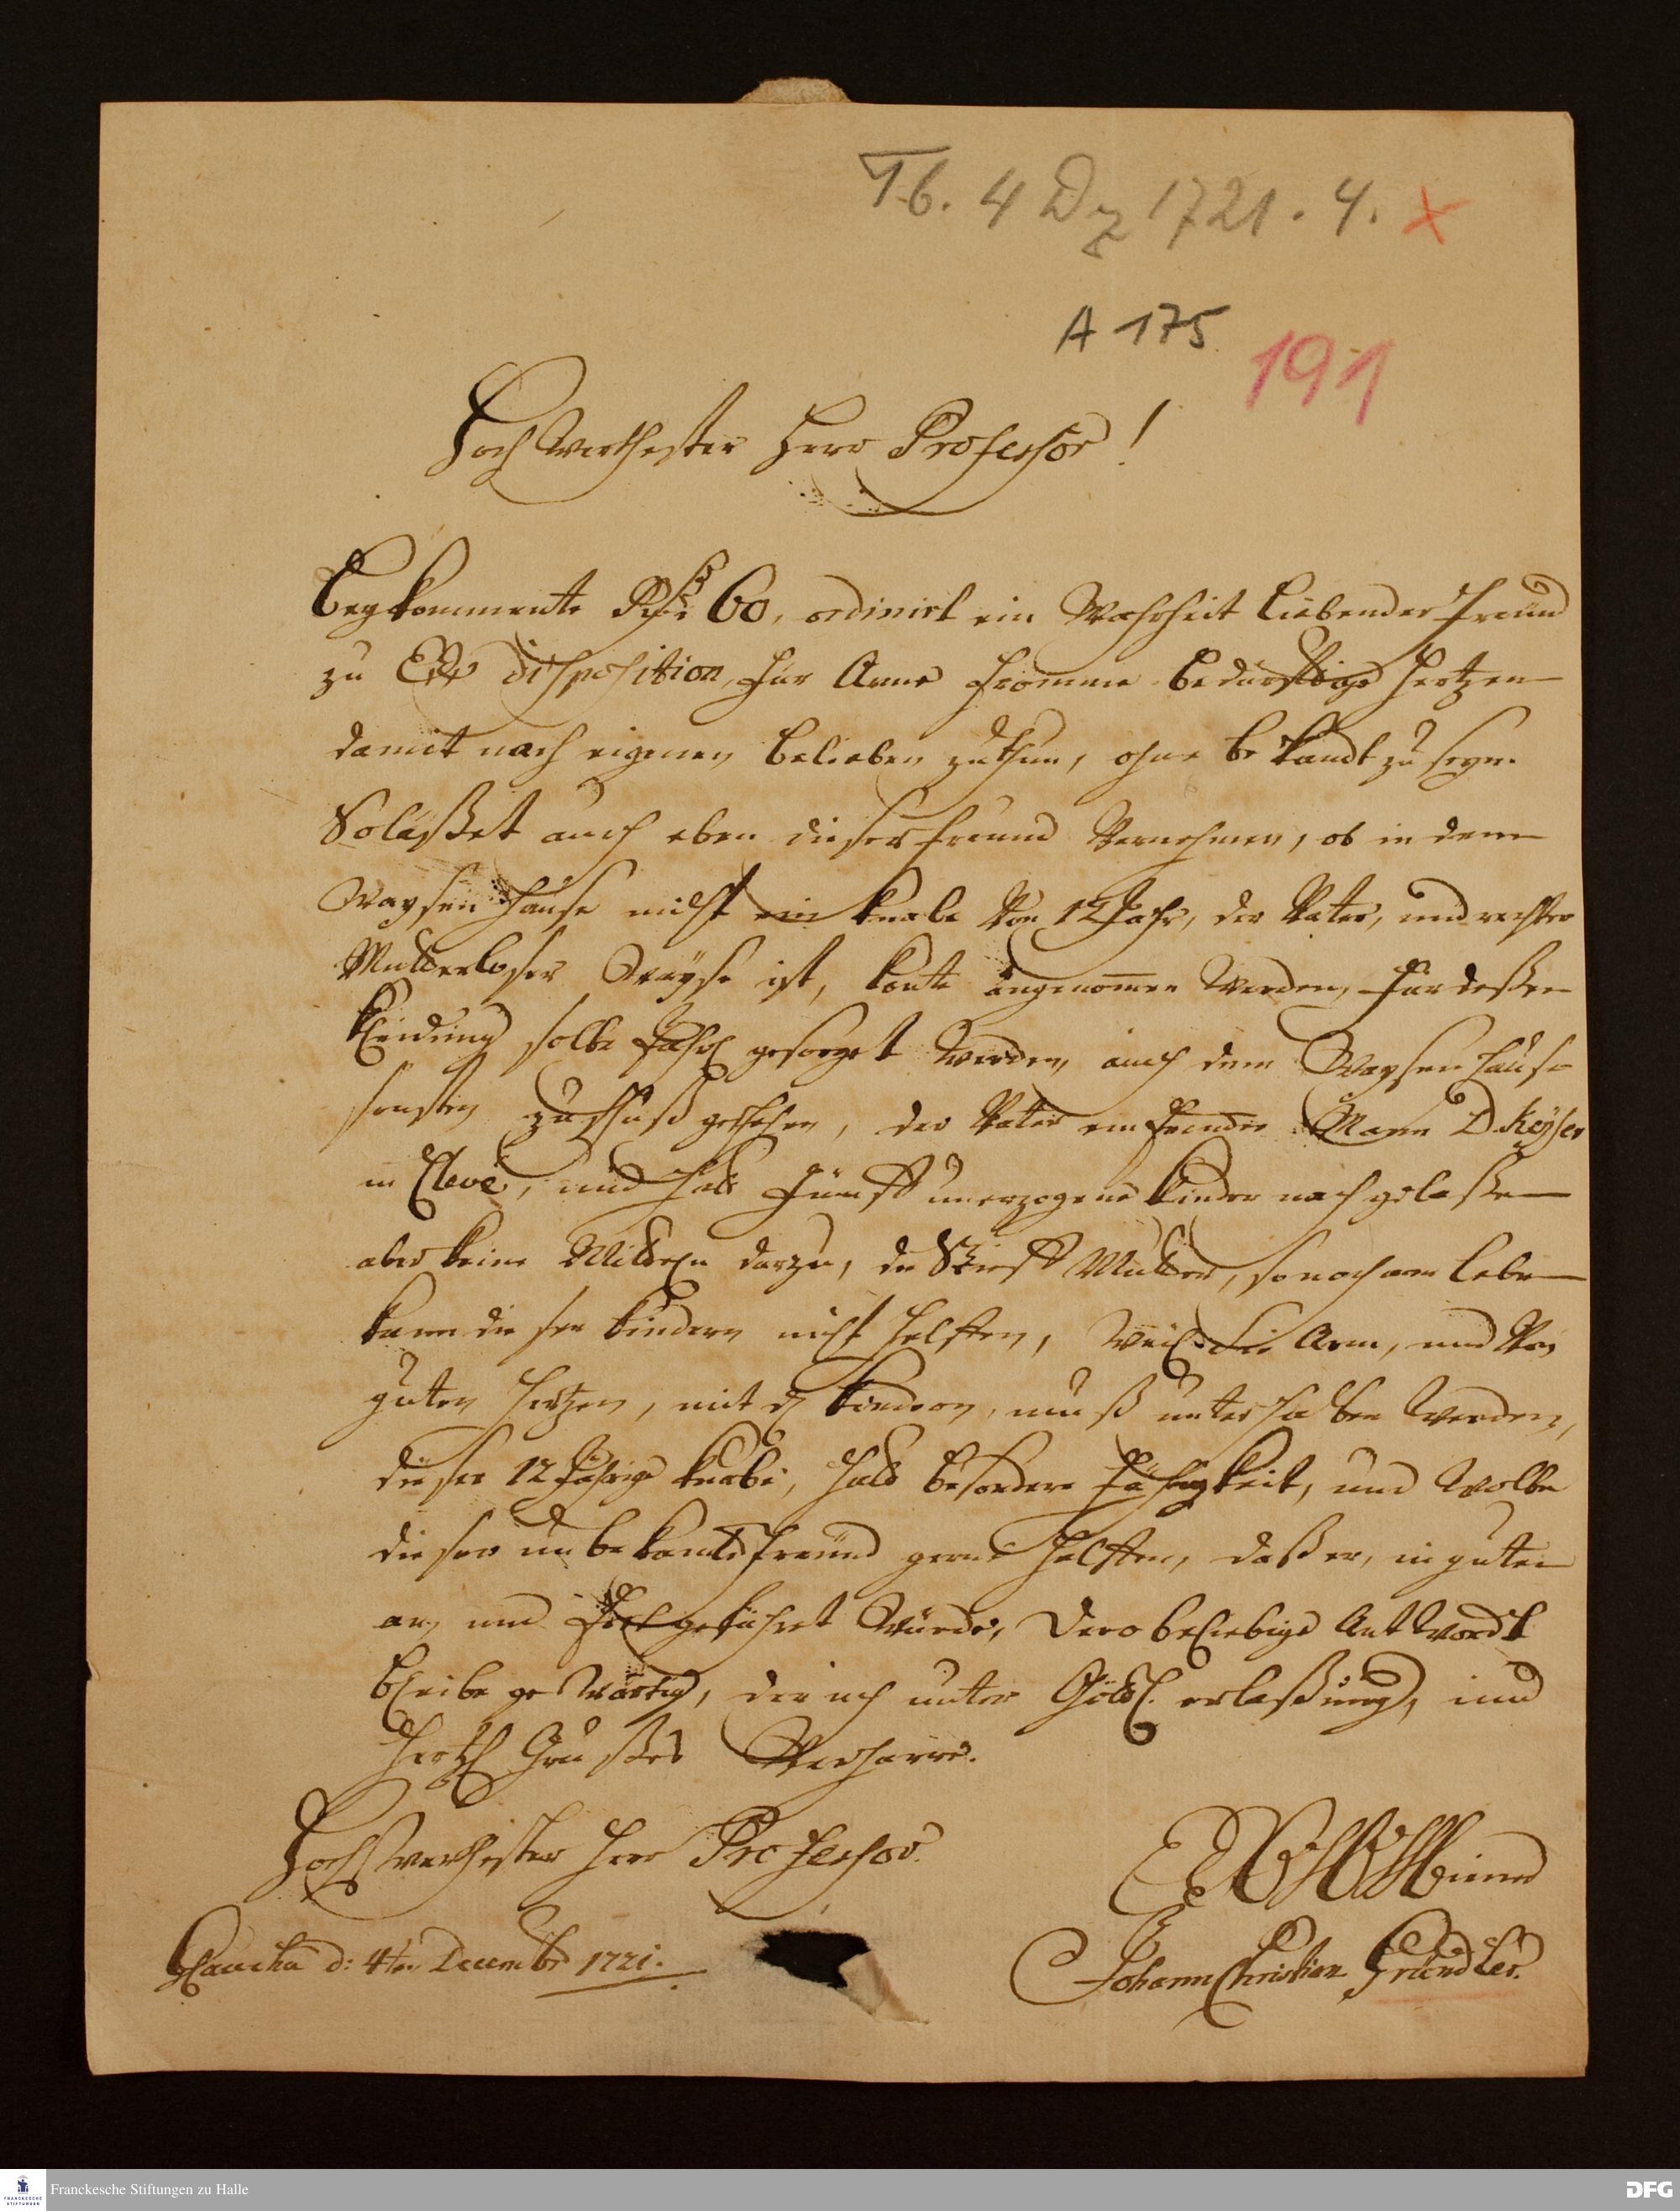 Tb. 4 Dz 1721. 4. x
A 175
191
Hochwerthester Herr Professor!
Beykommente 60, ordinirt ein Wahrheit Liebender Freund
zu Ew disposition, für Arme fromme bedürfftige Hertzen
damit nach eigenen belieben zuthun, ohne bekandt zu seyn.
So läßet auch eben dieser freund Vernehmen, ob in dem
Waysenhause nicht ein knabe Von 12 Jahr, der Vater, und rechter
Mutterloser Wayse ist, konte angenommen Werden, für deßen
kleidung solte Jährl gesorget werden, auch dem Waysenhause
sonsten zuschuß geschehen, der Vater ein Mann D. Keyser
in Cleve, und hatt fünff unerzogene kinder nach gelaßen
aber keine Mitteln darzu, die Stieff Mutter, so noch am leben
kann diesen kindern nicht helffen, Weil Sie Arm, und Von
guten Hertzen, mit d kindern, muß unterhalten Werden,
dieser 12 Jährige knabe, hatt besondere fähigkeit, und Wolte
dieser unbekante freund gerne helffen, daß er, in guten
an, und fortgeführet Würde, Dero beliebige Antwordt
bleibe gewärtig, der ich unter Göttl. erlaßung, und
Hertzl Grußes Verharre.
Hochwerthester Herr Professor.
Glaucha d: 4ten Decembr 1721.
Johann Christian Gründler.
Franckesche Stiftungen zu Halle
FRANCKESCHE STIFTUNGEN
DFG